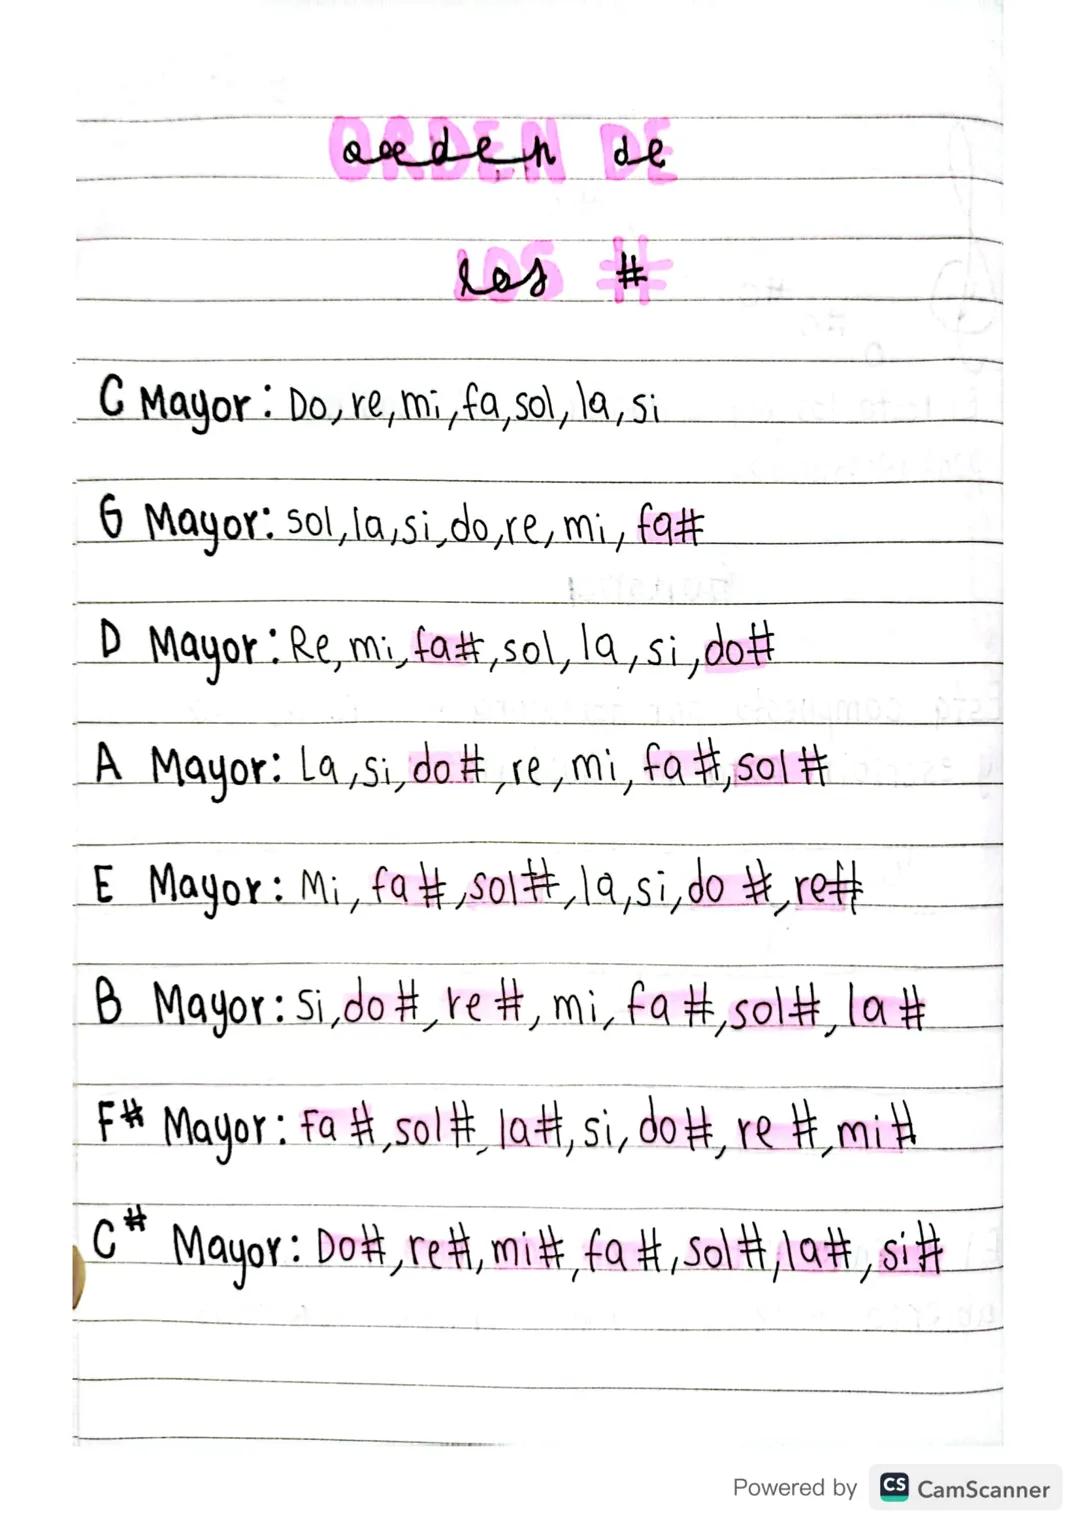 ORDEN DE
orden de
LOS #
los #
C Mayor: Do, re, mi, fa, sol, la, si
G Mayor: sol, la, si, do, re, mi, fa#
D Mayor: Re, mi, fa#, sol, la, si, do#
A Mayor: La, si, do#, re, mi, fa#, sol#
E Mayor: Mi, fa#, sol#, la, si, do #, re#
B Mayor: Si, do#, re#, mi, fa #, sol#, la #
F# Mayor: Fa #, sol#, la#, si, do#, re #, mi#
C# Mayor: Do#, re#, mi#, fa#, sol#, la#, si#
Powered by CS CamScanner